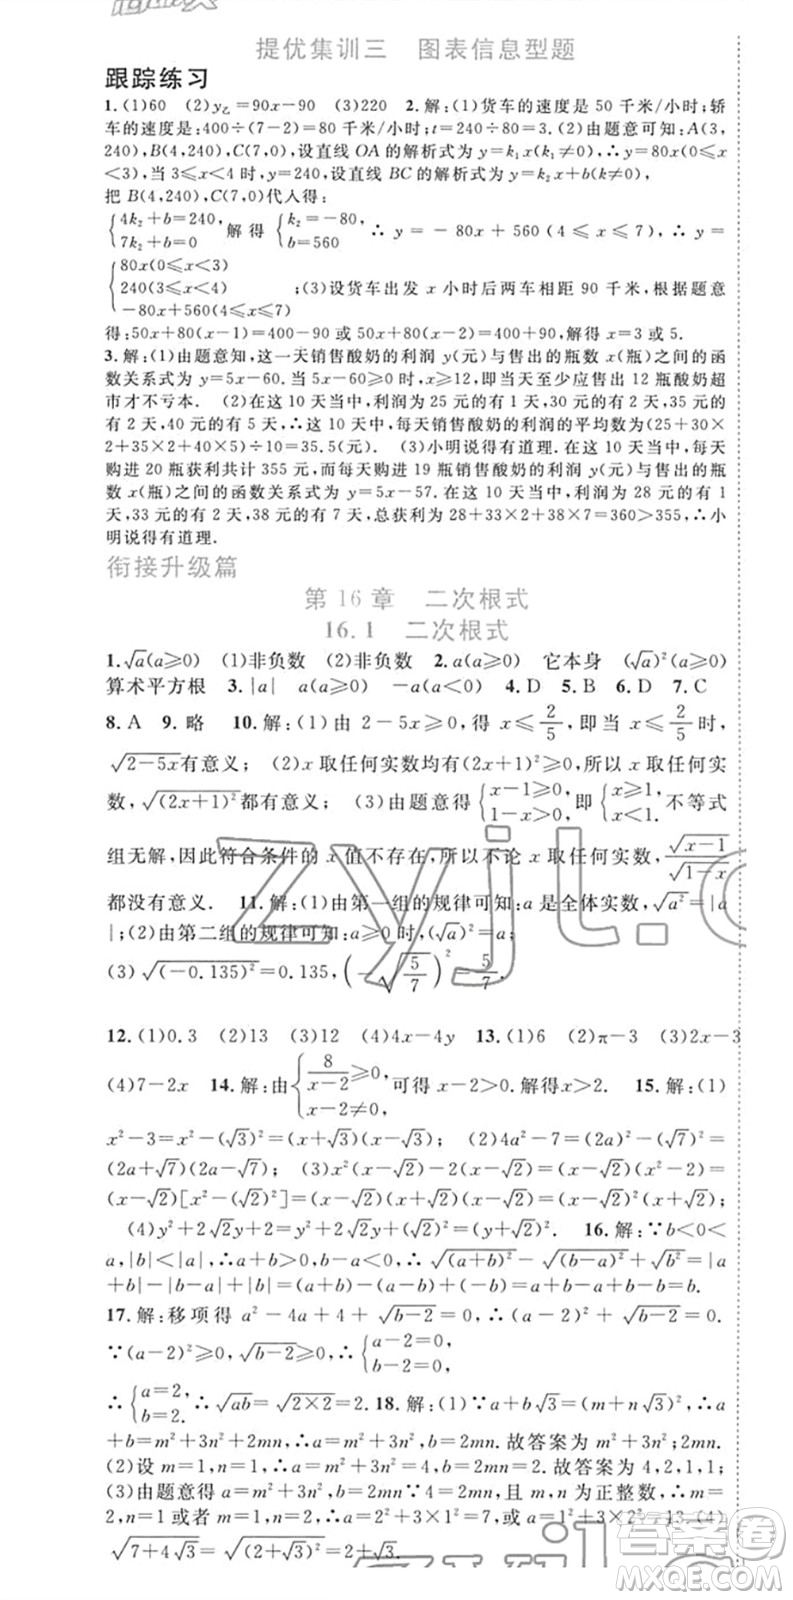 提优集训三 图表信息型题
跟踪练习
1.(1)60 (2)y乙=90x-90 (3)220 2.解:(1)货车的速度是 50 千米/小时;轿
车的速度是:400÷(7-2)=80 千米/小时;t=240÷80=3.(2)由题意可知:A(3,
240),B(4,240),C(7,0),设直线 OA 的解析式为 y=k₁x(k₁≠0),∴y=80x(0≤x
<3),当 3≤x<4 时,y=240,设直线 BC 的解析式为 y=k₂x+b(k₂≠0),
把 B(4,240),C(7,0)代入得:
{4k₂+b=240, 7k₂+b=0 解得{k₂=-80, b=560 ∴y=-80x+560(4≤x≤7);∴y=
{80x(0≤x<3) 240(3≤x<4) -80x+560(4≤x≤7) ;(3)设货车出发 x 小时后两车相距 90 千米,根据题意
得:50x+80(x-1)=400-90 或 50x+80(x-2)=400+90,解得 x=3 或 5.
3.解:(1)由题意知,这一天销售酸奶的利润 y(元)与售出的瓶数 x(瓶)之间的函
数关系式为 y=5x-60.当 5x-60≥0 时,x≥12,即当天至少应售出 12 瓶酸奶超
市才不亏本. (2)在这 10 天当中,利润为 25 元的有 1 天,30 元的有 2 天,35 元的
有 2 天,40 元的有 5 天,∴这 10 天中,每天销售酸奶的利润的平均数为(25+30×
2+35×2+40×5)÷10=35.5(元). (3)小明说得有道理.在这 10 天当中,每天
购进 20 瓶获利共计 355 元,而每天购进 19 瓶销售酸奶的利润 y(元)与售出的瓶
数 x(瓶)之间的函数关系式为 y=5x-57.在这 10 天当中,利润为 28 元的有 1
天,33 元的有 2 天,38 元的有 7 天,总获利为 28+33×2+38×7=360>355,∴小
明说得有道理.
衔接升级篇
第 16 章 二次根式
16.1 二次根式
1.√a(a≥0) (1)非负数 (2)非负数 2.a(a≥0) 它本身 (√a)²(a≥0)
算术平方根 3.|a| a(a≥0) -a(a<0) 4.D 5.B 6.D 7.C
8.A 9.略 10.解:(1)由 2-5x≥0,得 x≤2/5,即当 x≤2/5 时,
√(2-5x)有意义; (2)x 取任何实数均有(2x+1)²≥0,所以 x 取任何实
数,√((2x+1)²)都有意义; (3)由题意得{x-1≥0, 1-x>0, 即{x≥1, x<1. 不等式
组无解,因此符合条件的 x 值不存在,所以不论 x 取任何实数,√(x-1)/√(1-x)
都没有意义. 11.解:(1)由第一组的规律可知:a 是全体实数,√(a²)=|a
|;(2)由第二组的规律可知:a≥0 时,(√a)²=a;
(3)√((-0.135)²)=0.135,(-√(5/7))²=5/7.
12.(1)0.3 (2)13 (3)12 (4)4x-4y 13.(1)6 (2)π-3 (3)2x-3
(4)7-2x 14.解:由{8/(x-2)≥0, x-2≠0, 可得 x-2>0.解得 x>2. 15.解:(1)
x²-3=x²-(√3)²=(x+√3)(x-√3); (2)4a²-7=(2a)²-(√7)²=
(2a+√7)(2a-√7); (3)x(x-√2)-x²(x-√2)=(x-√2)(x²-2)=
(x-√2)[x²-(√2)²]=(x-√2)(x+√2)(x-√2)=(x+√2)(x-√2)²;
(4)y²+2√2y+2=y²+2√2y+(√2)²=(y+√2)². 16.解:∵b<0<
a,|b|<|a|,∴a+b>0,b-a<0,∴√((a+b)²)-√((b-a)²)+√(b²)=|a
+b|-|b-a|+|b|=(a+b)-(a-b)+(-b)=a+b-a+b-b=b.
17.解:移项得 a²-4a+4+√(b-2)=0.∴(a-2)²+√(b-2)=0.
∵(a-2)²≥0,√(b-2)≥0,∴{a-2=0, b-2=0,
∴{a=2, b=2. ∴√(ab)=√(2×2)=2.18.解:(1)∵a+b√3=(m+n√3)²,∴a+
b√3=m²+3n²+2mn√3,∴a=m²+3n²,b=2mn.故答案为 m²+3n²,2mn;
(2)设 m=1,n=1,∴a=m²+3n²=4,b=2mn=2.故答案为 4,2,1,1;
(3)由题意得 a=m²+3n²,b=2mn∵4=2mn,且 m,n 为正整数,∴m=
2,n=1 或者 m=1,n=2,∴a=2²+3×1²=7,或 a=1²+3×2²=13.(4)
√(7+4√3)=√((2+√3)²)=2+√3.
zyjl.c
答案圈
MXQE.COM